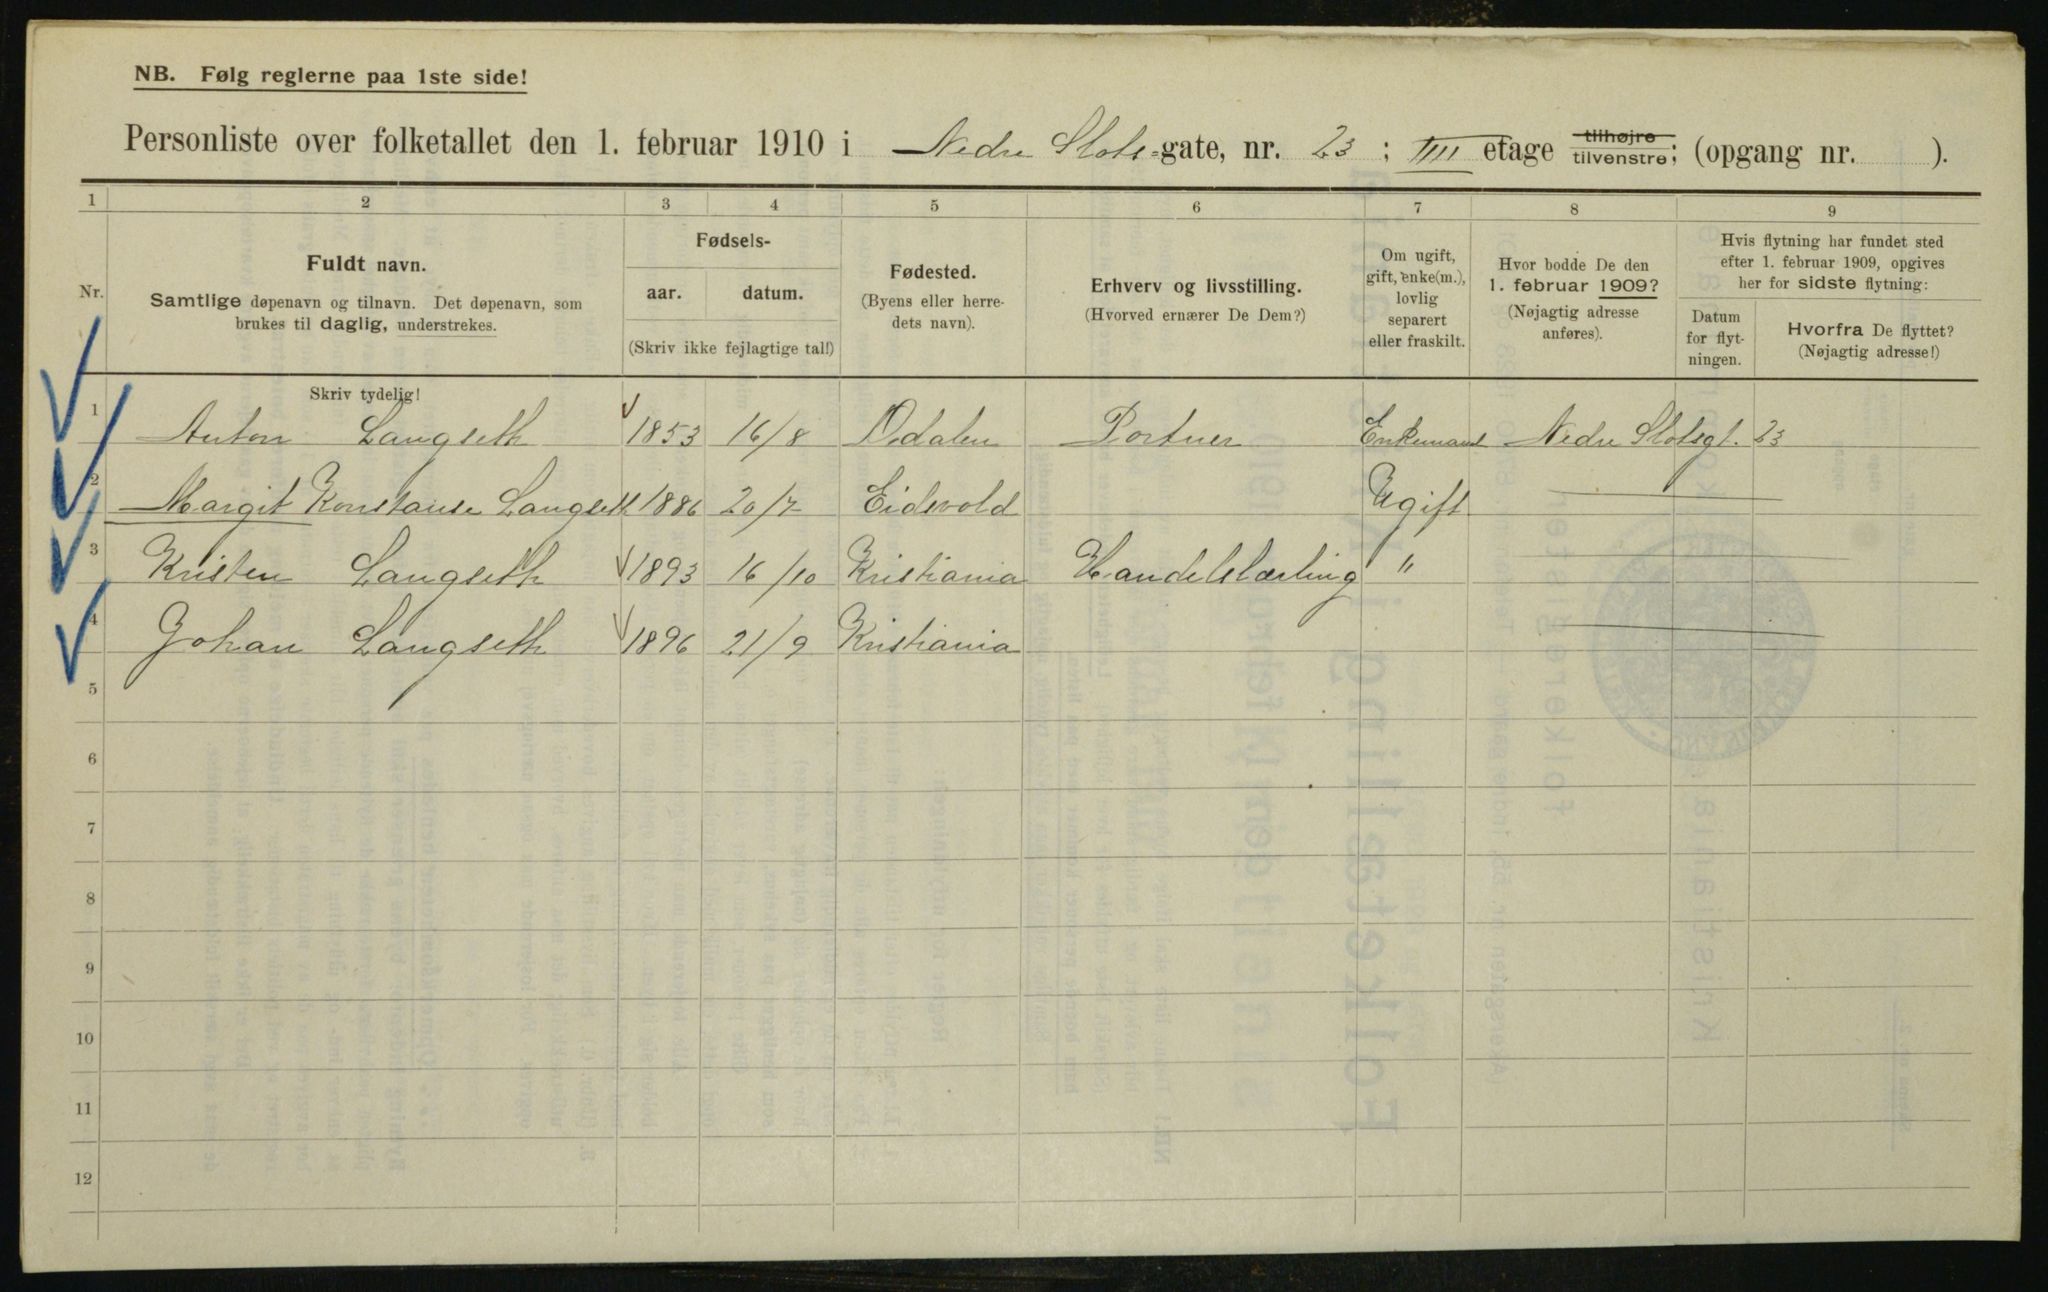 NB. Følg reglerne paa 1ste side!
Personliste over folketallet den 1. februar 1910 i Nedre Slots-gate, nr. 23 ; IIII etage tilhøjre tilvenstre; (opgang nr. ).
1 2 3 4 5 6 7 8 9
Nr.
Fuldt navn.
Samtlige døpenavn og tilnavn. Det døpenavn, som
brukes til daglig, understrekes.
Fødsels-
aar. datum.
(Skriv ikke fejlagtige tal!)
Fødested.
(Byens eller herre-
dets navn).
Erhverv og livsstilling.
(Hvorved ernærer De Dem?)
Om ugift,
gift, enke(m.),
lovlig
separert
eller fraskilt.
Hvor bodde De den
1. februar 1909?
(Nøjagtig adresse
anføres).
Hvis flytning har fundet sted
efter 1. februar 1909, opgives
her for sidste flytning:
Datum
for flyt-
ningen.
Hvorfra De flyttet?
(Nøjagtig adresse!)
Skriv tydelig!
1 Anton Langseth 1853 16/8 Odalen Portner Enkemand Nedre Slotsgt. 23
2 Margit Konstanse Langseth 1886 20/7 Eidsvold Ugift
3 Kristen Langseth 1893 16/10 Kristiania Handelslærling "
4 Johan Langseth 1896 21/9 Kristiania
5
6
7
8
9
10
11
12